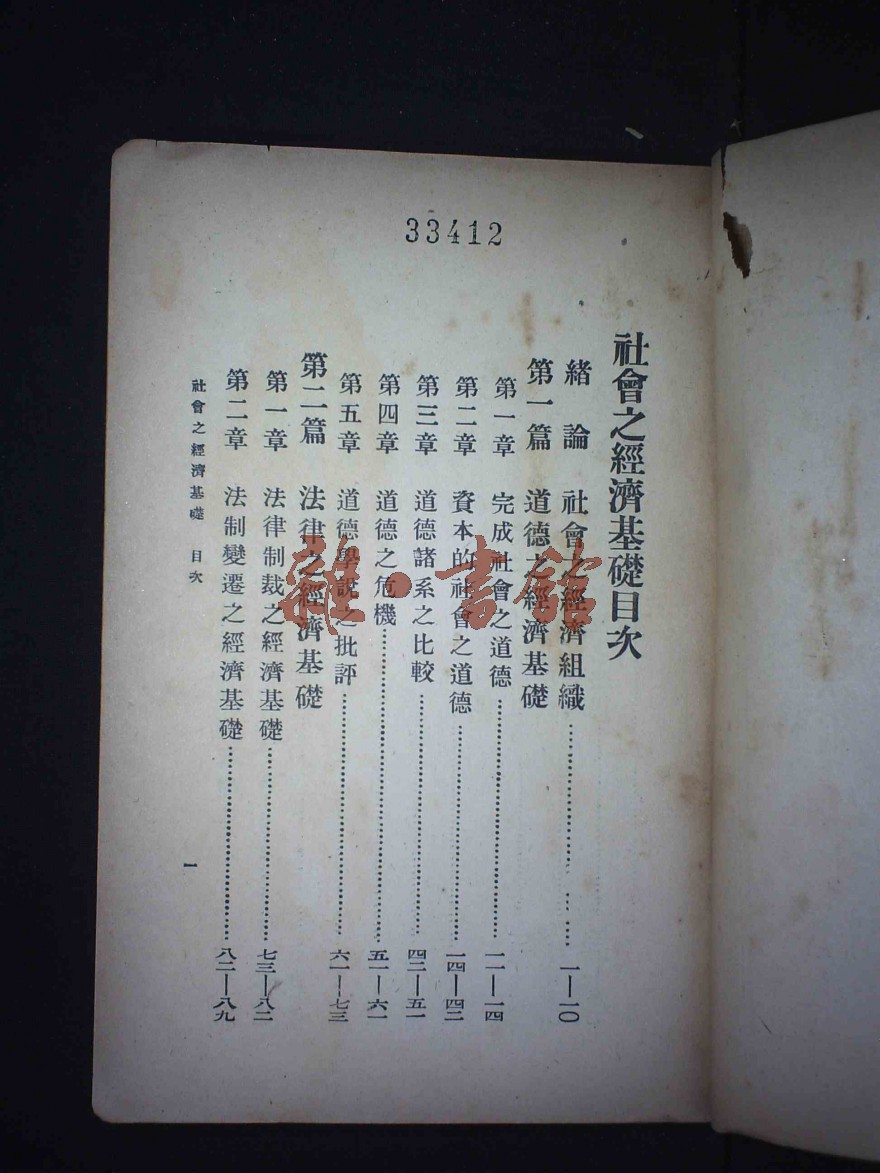 33412
社會之經濟基礎目次
緒論 社會之經濟組織…………一—一〇
第一篇 道德之經濟基礎
第一章 完成社會之道德…………一一—一四
第二章 資本的社會之道德…………一四—四二
第三章 道德諸系之比較…………四二—五一
第四章 道德之危機…………五一—六一
第五章 道德學說之批評…………六一—七三
第二篇 法律之經濟基礎
第一章 法律制裁之經濟基礎…………七三—八二
第二章 法制變遷之經濟基礎…………八二—八九
社會之經濟基礎 目次
一
雜·書館